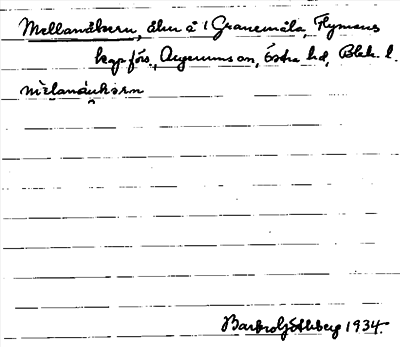 Mellanåkern, åker å 1 Granemåla, Flymens
kapförs., Augerums sn, Östra hd, Blek. l.
mèlanåukørn
Barbro Götheberg 1934.